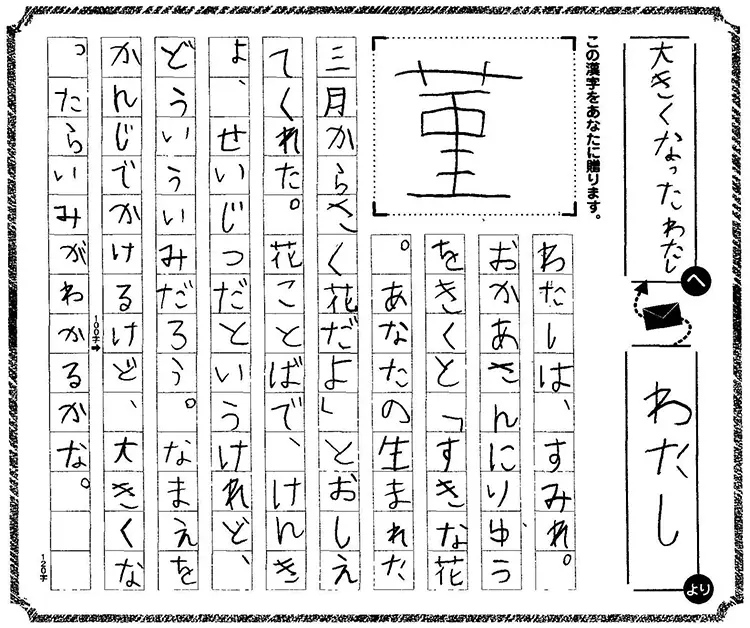 大きくなったわたし
へ
わたし
より
この漢字をあなたに贈ります。
菫
わたしは、すみれ。
おかあさんにりゆう
をきくと「すきな花
。あなたの生まれた
三月からさく花だよ」とおしえ
てくれた。花ことばで、けんき
ょ、せいじつだというけれど、
どういういみだろう。なまえを
かんじでかけるけど、大きくな
100字➡
ったらいみがわかるかな。
120字